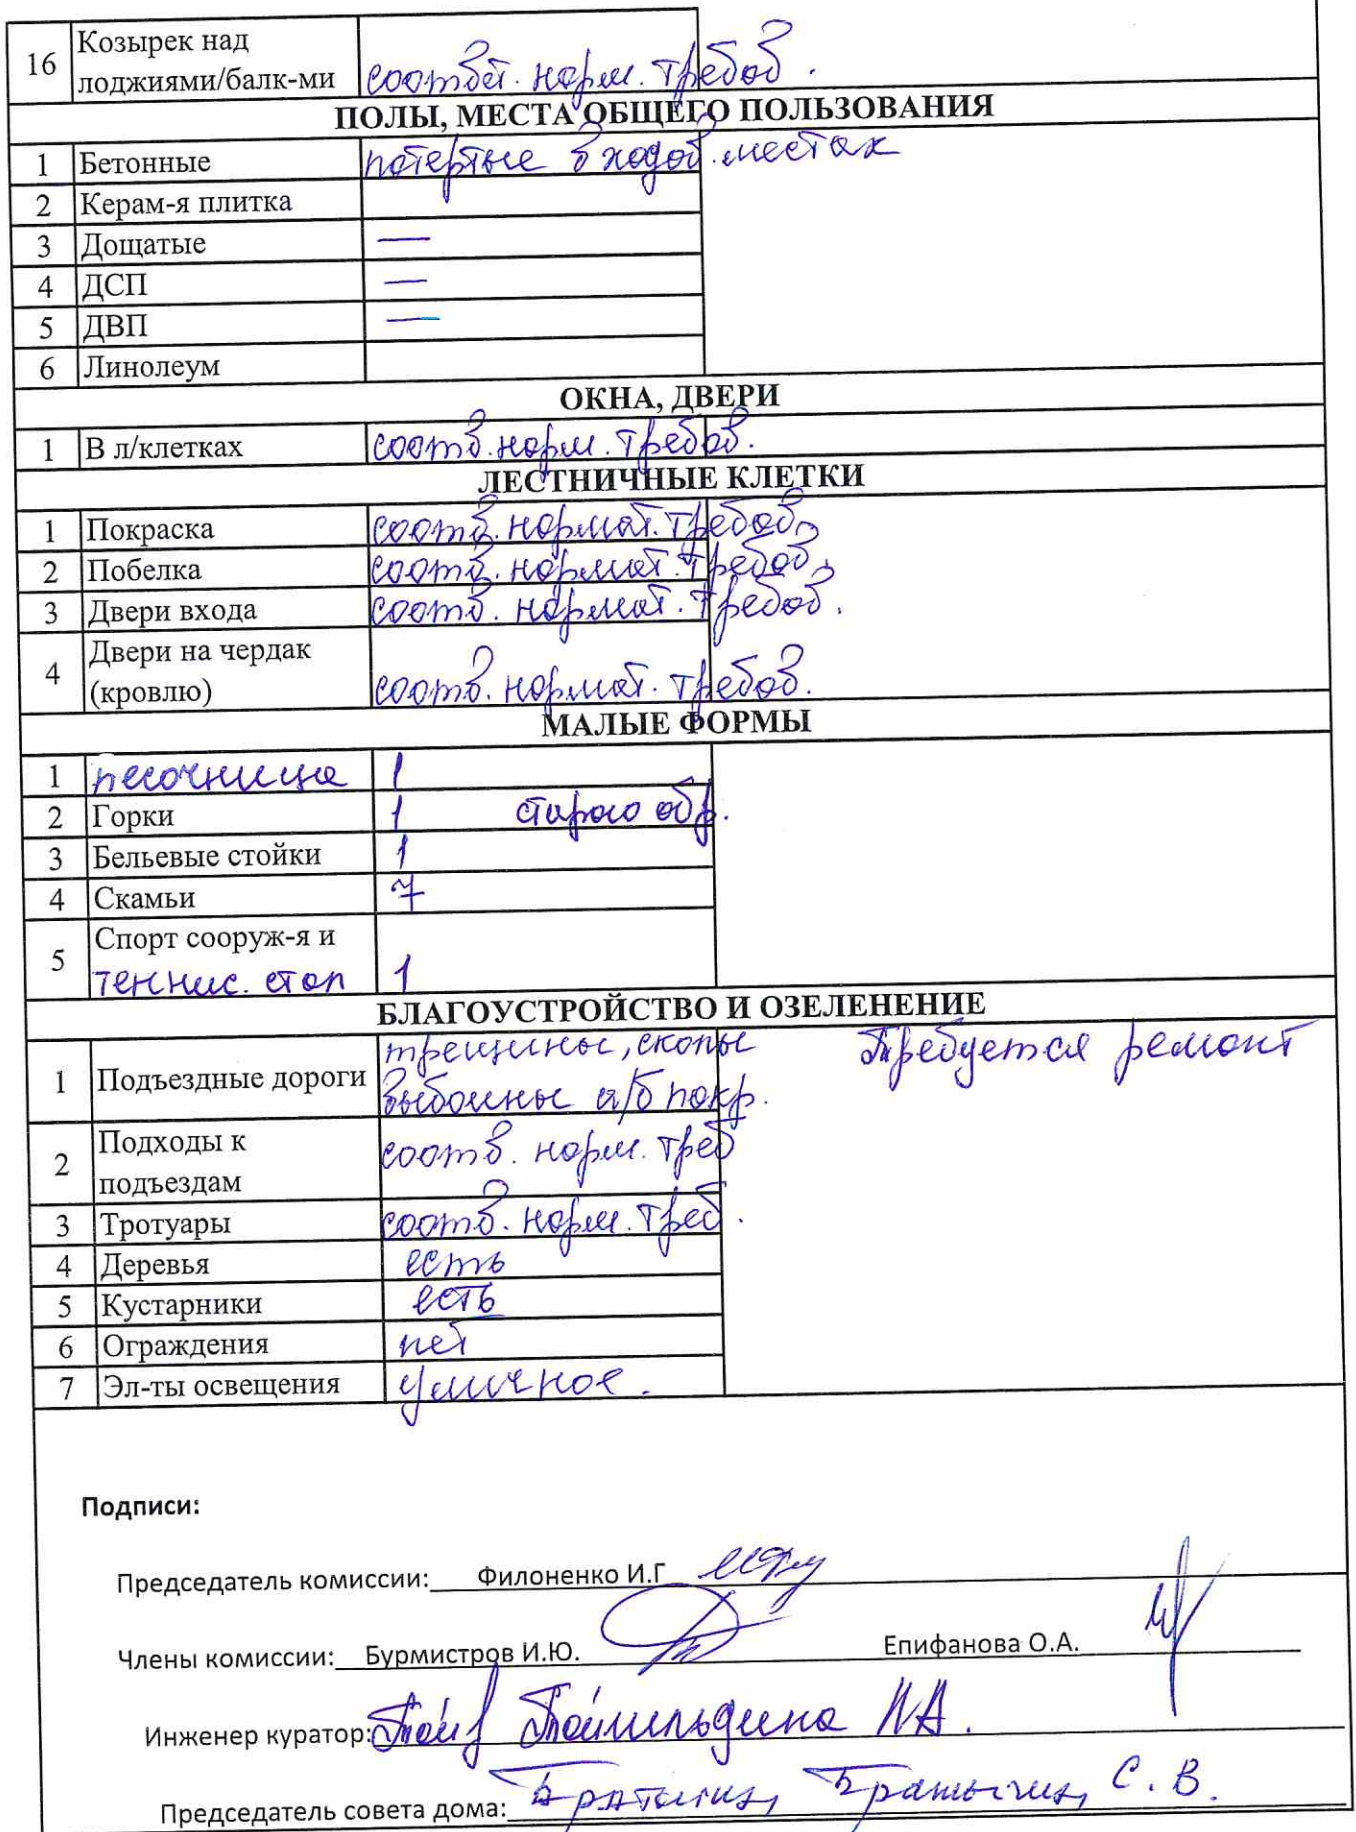 16 Козырек над
лоджиями/балк-ми соответ. норм. требов.
ПОЛЫ, МЕСТА ОБЩЕГО ПОЛЬЗОВАНИЯ
1 Бетонные потертые в ходов. местах
2 Керам-я плитка
3 Дощатые —
4 ДСП —
5 ДВП —
6 Линолеум
ОКНА, ДВЕРИ
1 В л/клетках соотв. норм. требов.
ЛЕСТНИЧНЫЕ КЛЕТКИ
1 Покраска соотв. нормат. требов.
2 Побелка соотв. нормат. требов.
3 Двери входа соотв. нормат. требов.
4 Двери на чердак
(кровлю) соотв. нормат. требов.
МАЛЫЕ ФОРМЫ
1 песочница 1
2 Горки 1 старого обр.
3 Бельевые стойки 1
4 Скамьи 7
5 Спорт сооруж-я и
теннис. стол 1
БЛАГОУСТРОЙСТВО И ОЗЕЛЕНЕНИЕ
трещины, сколы Требуется ремонт
1 Подъездные дороги выбоины а/б покр.
2 Подходы к
подъездам соотв. норм. треб
3 Тротуары соотв. норм. треб.
4 Деревья есть
5 Кустарники есть
6 Ограждения нет
7 Эл-ты освещения уличное.
Подписи:
Председатель комиссии: Филоненко И.Г
Члены комиссии: Бурмистров И.Ю. Епифанова О.А.
Инженер куратор:
Председатель совета дома: С. В.